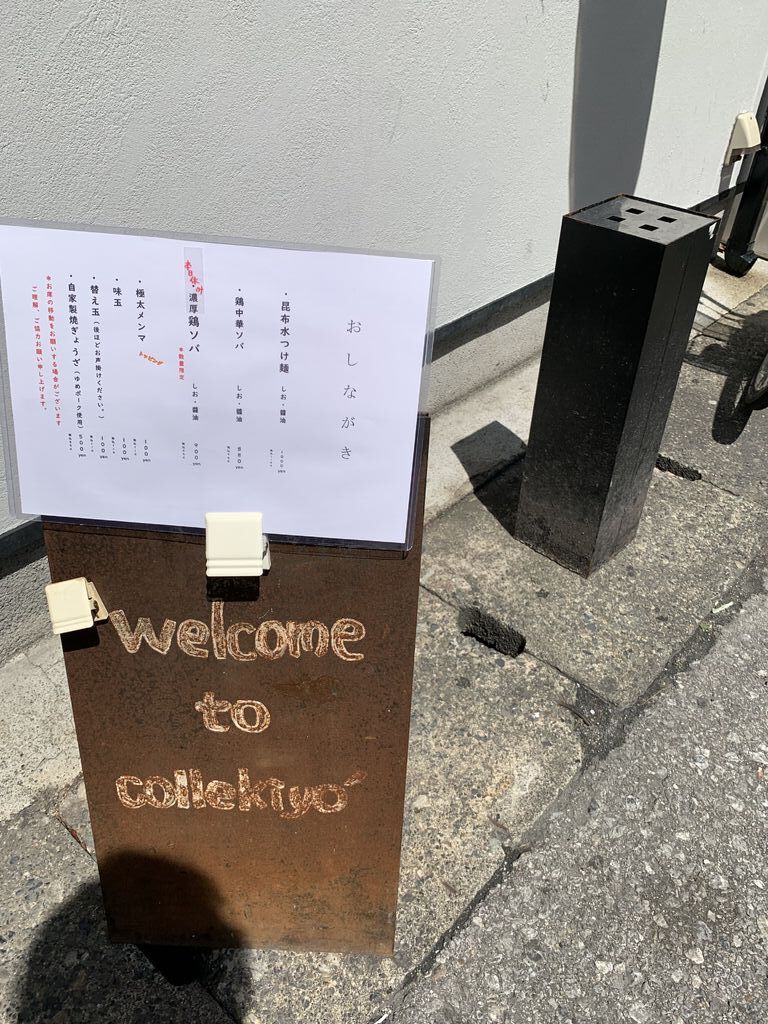 おしながき
・昆布水つけ麺 しお・醤油 1000yen
・鶏中華ソバ しお・醤油 880yen
本日休み
・濃厚鶏ソバ しお・醤油 900yen
*数量限定
・極太メンマ 100yen
トッピング
・味玉 100yen
・替え玉(後ほどお声掛けください。) 100yen
・自家製焼ぎょうざ(ゆめポーク使用) 500yen
*お席の移動をお願いする場合がございます
ご理解、ご協力お願い申し上げます。
welcome
to
collekiyo